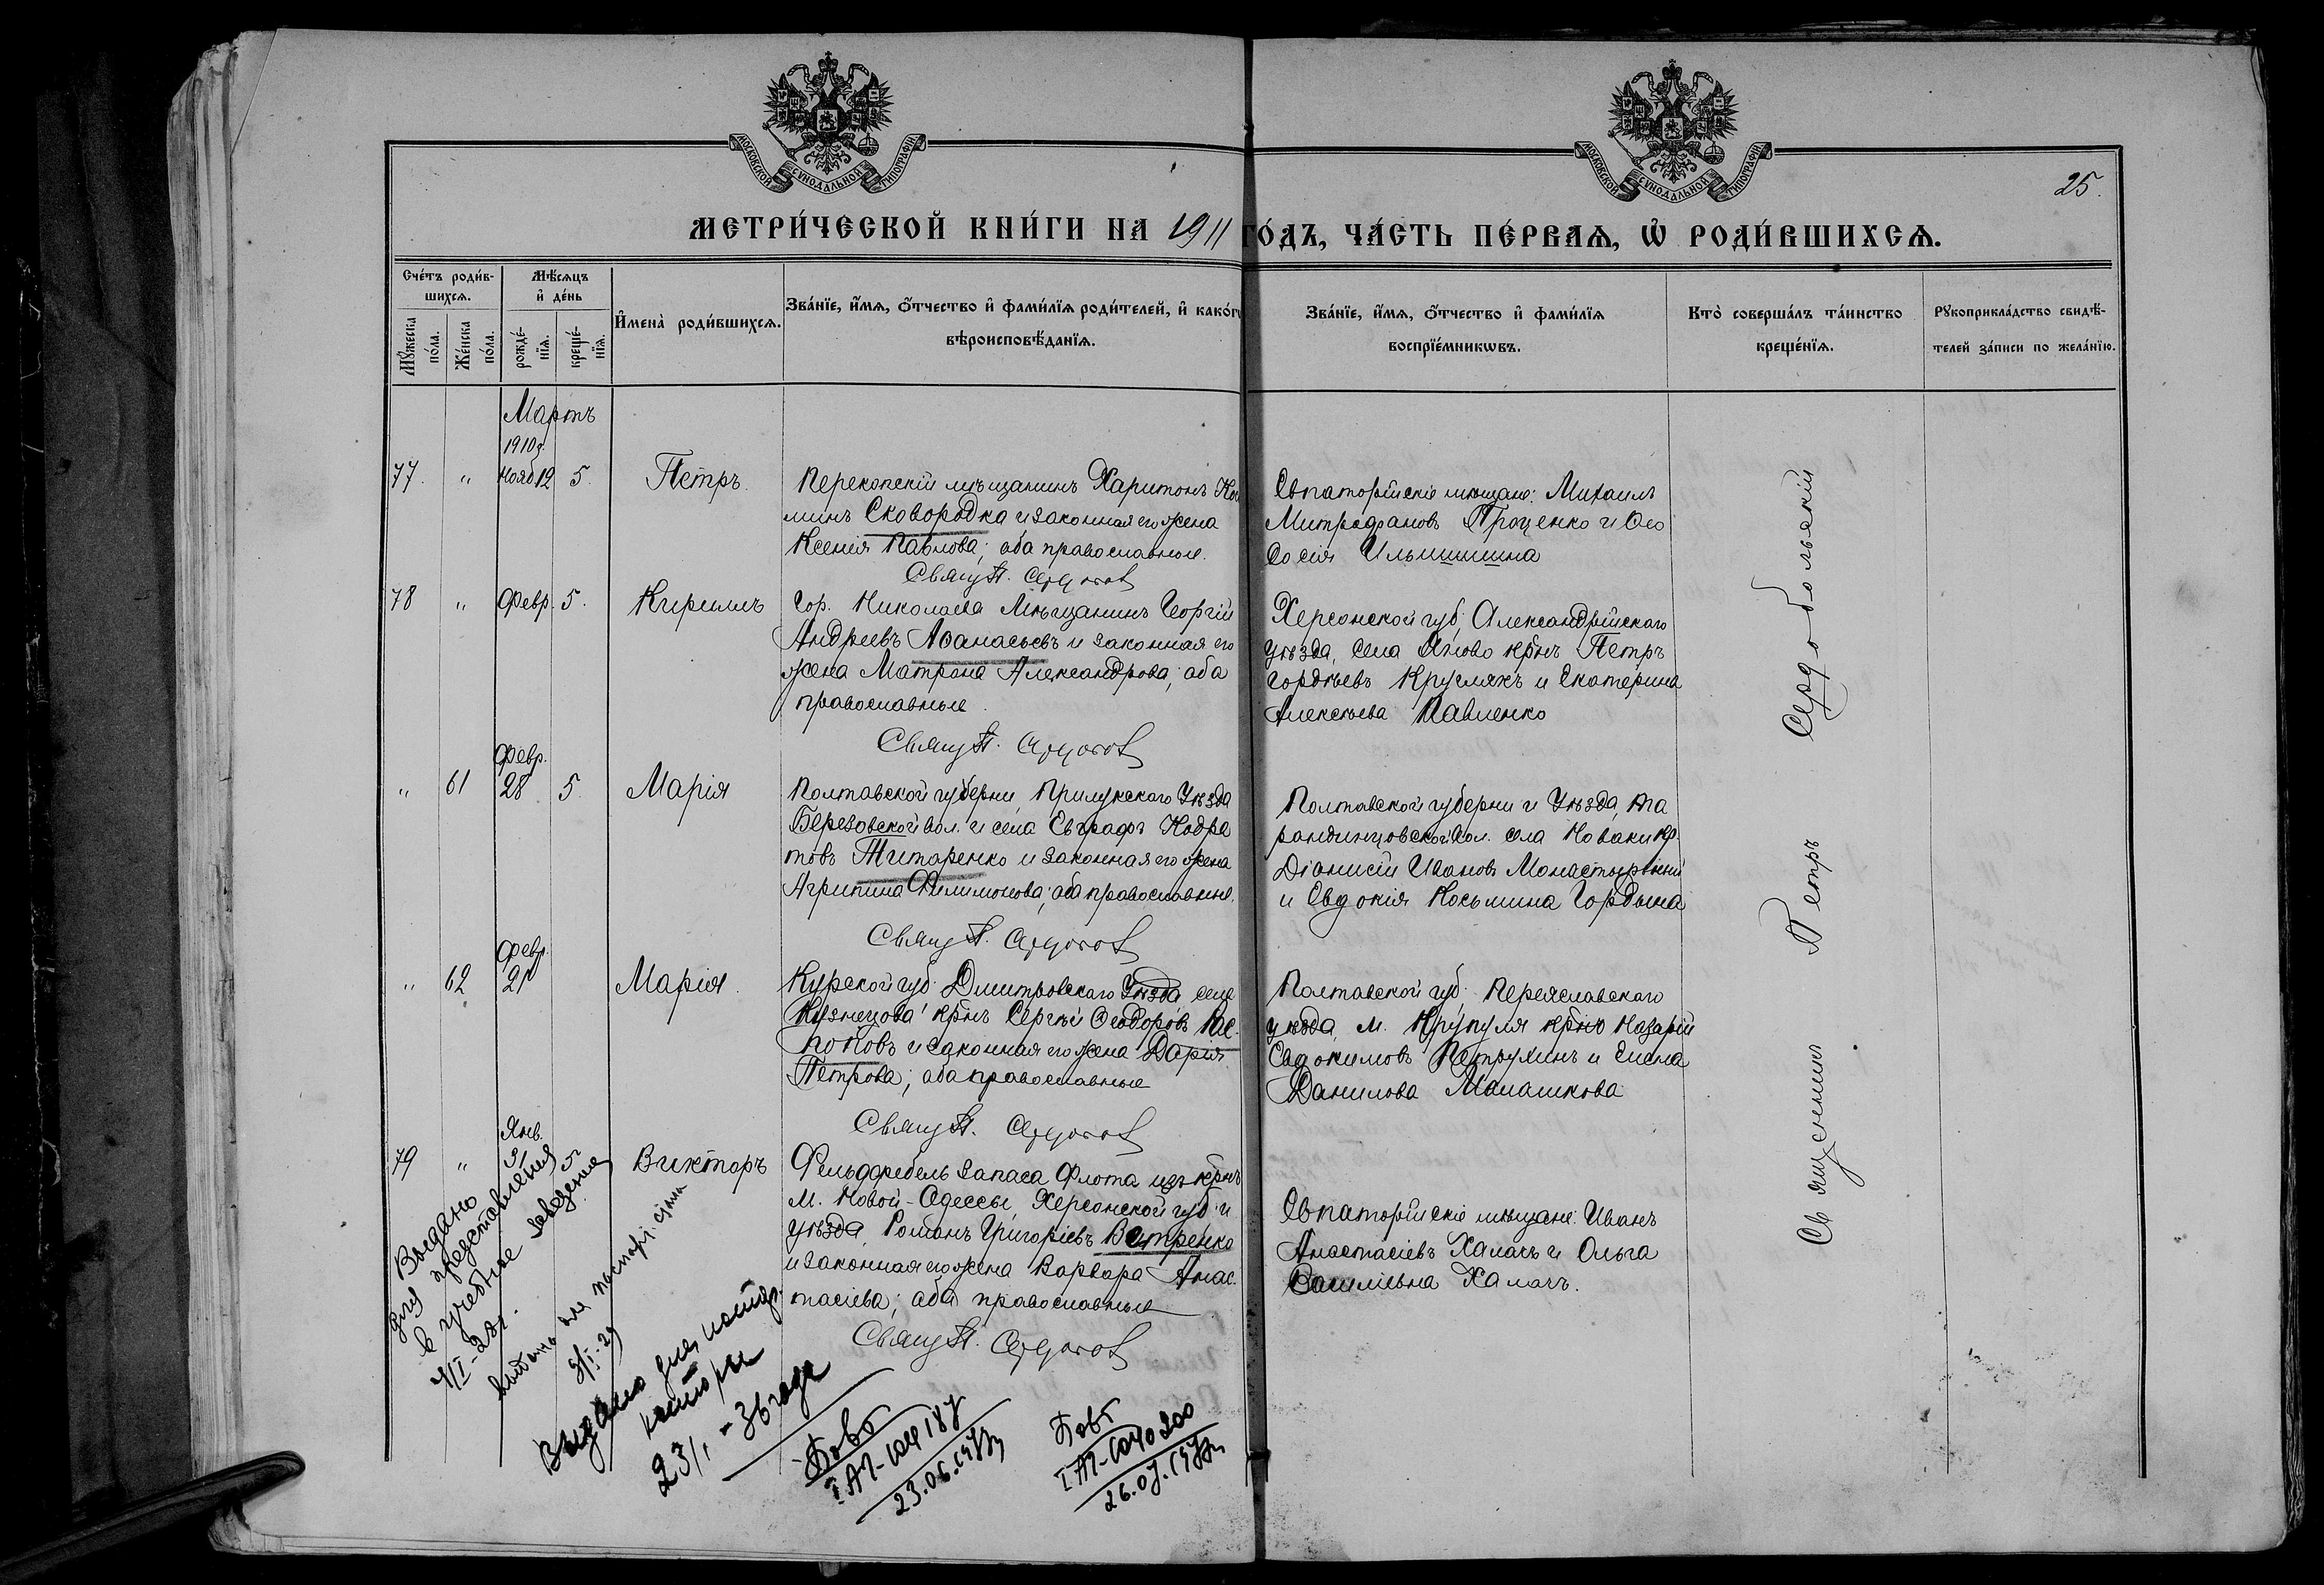 МОСКОВСКОЙ СѴНОДАЛЬНОЙ ТИПОГРАФІИ
МОСКОВСКОЙ СѴНОДАЛЬНОЙ ТИПОГРАФІИ
25.
МЕТРИ́ЧЕСКОЙ КНИ́ГИ НА 1911 ГО́ДЪ, ЧА́СТЬ ПЕ́РВАѦ, Ѽ РОДИ́ВШИХСѦ.
Сче́тъ роди́в-
шихсѧ.
Мѣ́сѧцъ
и҆ де́нь
Мꙋ́жеска по́ла.
Же́нска по́ла.
рожде́-
нїѧ.
креще́-
нїѧ.
И҆мена̀ роди́вшихсѧ.
Зва́нїе, и҆́мѧ, ѻ҆́тчество и҆ фами́лїѧ роди́телей, и҆ како́гѡ
вѣроисповѣ́данїѧ.
Зва́нїе, и҆́мѧ, ѻ҆́тчество и҆ фами́лїѧ
воспрїе́мникѡвъ.
Кто̀ соверша́лъ та́инство
креще́нїѧ.
Рꙋкоприкла́дство свидѣ́-
телей за́писи по жела́нїю.
Мартъ
1910г.
77. " Нояб 12 5. Петръ.
Перекопскій мѣщанинъ Харитонъ
минъ Сковородка и законная его жена
Ксенія Павлова; оба православные.
Свящ П.
Евпаторійскіе мѣщане: Михаилъ
Митрофановъ Проценко и Ѳео
досія Ильишишина
78 " Февр. 5. Кириллъ
Гор. Николаева Мѣщанинъ Георгій
Андреевъ Аѳанасьевъ и законная его
жена Матрона Александрова; оба
православные.
Свящ П.
Херсонской губ, Александрійскаго
уѣзда, села крнъ Петръ
Гордѣевъ Круглякъ и Екатерина
Алексѣева Павленко
Февр.
" 61 28 5. Марія
Полтавской губерни, Прилукскаго Уѣзда
Березовской вол. и села Евграфъ Кодра
товъ Титаренко и законная его жена
Агрипина Филимонова; оба православные.
Свящ П.
Полтавской губерни и Уѣзда, Та
рандинцовской Вол. села Новаки кр.
Діонисій Ивановъ Монастырскій
и Евдокія Косьмина Гордына
Февр.
" 62 21 Марія.
Курской губ. Дмитровскаго Уѣзда села
Кузнецова крнъ Сергѣй Ѳеодоровъ
поповъ и законная его жена Дарія
Петрова; оба православные
Свящ П.
Полтавской губ. Переяславскаго
уѣзда, м. Крупуля крнъ Назарій
Евдокимовъ Петрухинъ и Елена
Данилова Малашкова
Янв.
79 " 31 5 Викторъ
Фельдфебель запаса Флота изъ крнъ
м. Новой-Одессы, Херсонской губ. и
уѣзда, Романъ Григоріевъ Ветренко
и законная его жена Варвара Анас.
тасіева; оба православные
Свящ П.
Евпаторійскіе мѣщане: Иванъ
Анастасіевъ Халачъ и Ольга
Василіевна Халачъ.
Священникъ Петръ Сердобольскій
Выдано
для представления
в учебные заведения
Выдано для
конторы
23/I - 36 года
I АП-
23.06.
I АП-
26.07.